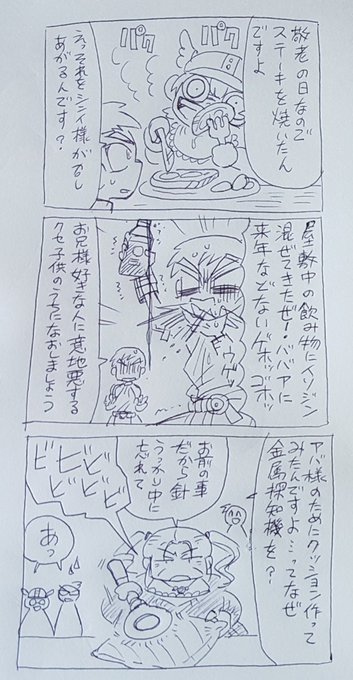 敬老の日なので
ステーキを焼いたん
ですよ
パク
パク
えっそれをシンイ様がめし
あがるんです?
屋敷中の飲み物にイソジン
混ぜてきたぜ!ババアに
来年などないゲホッゴホッ
ウゲッ
お兄様好きな人に意地悪する
クセ子供のうちになおしましょう
アバ様のためにクッション作って
みたんですよ…ってなぜ
金属探知機を?
お前の事
だから針
うっかり中に
忘れて
ビビビビビ
あっ